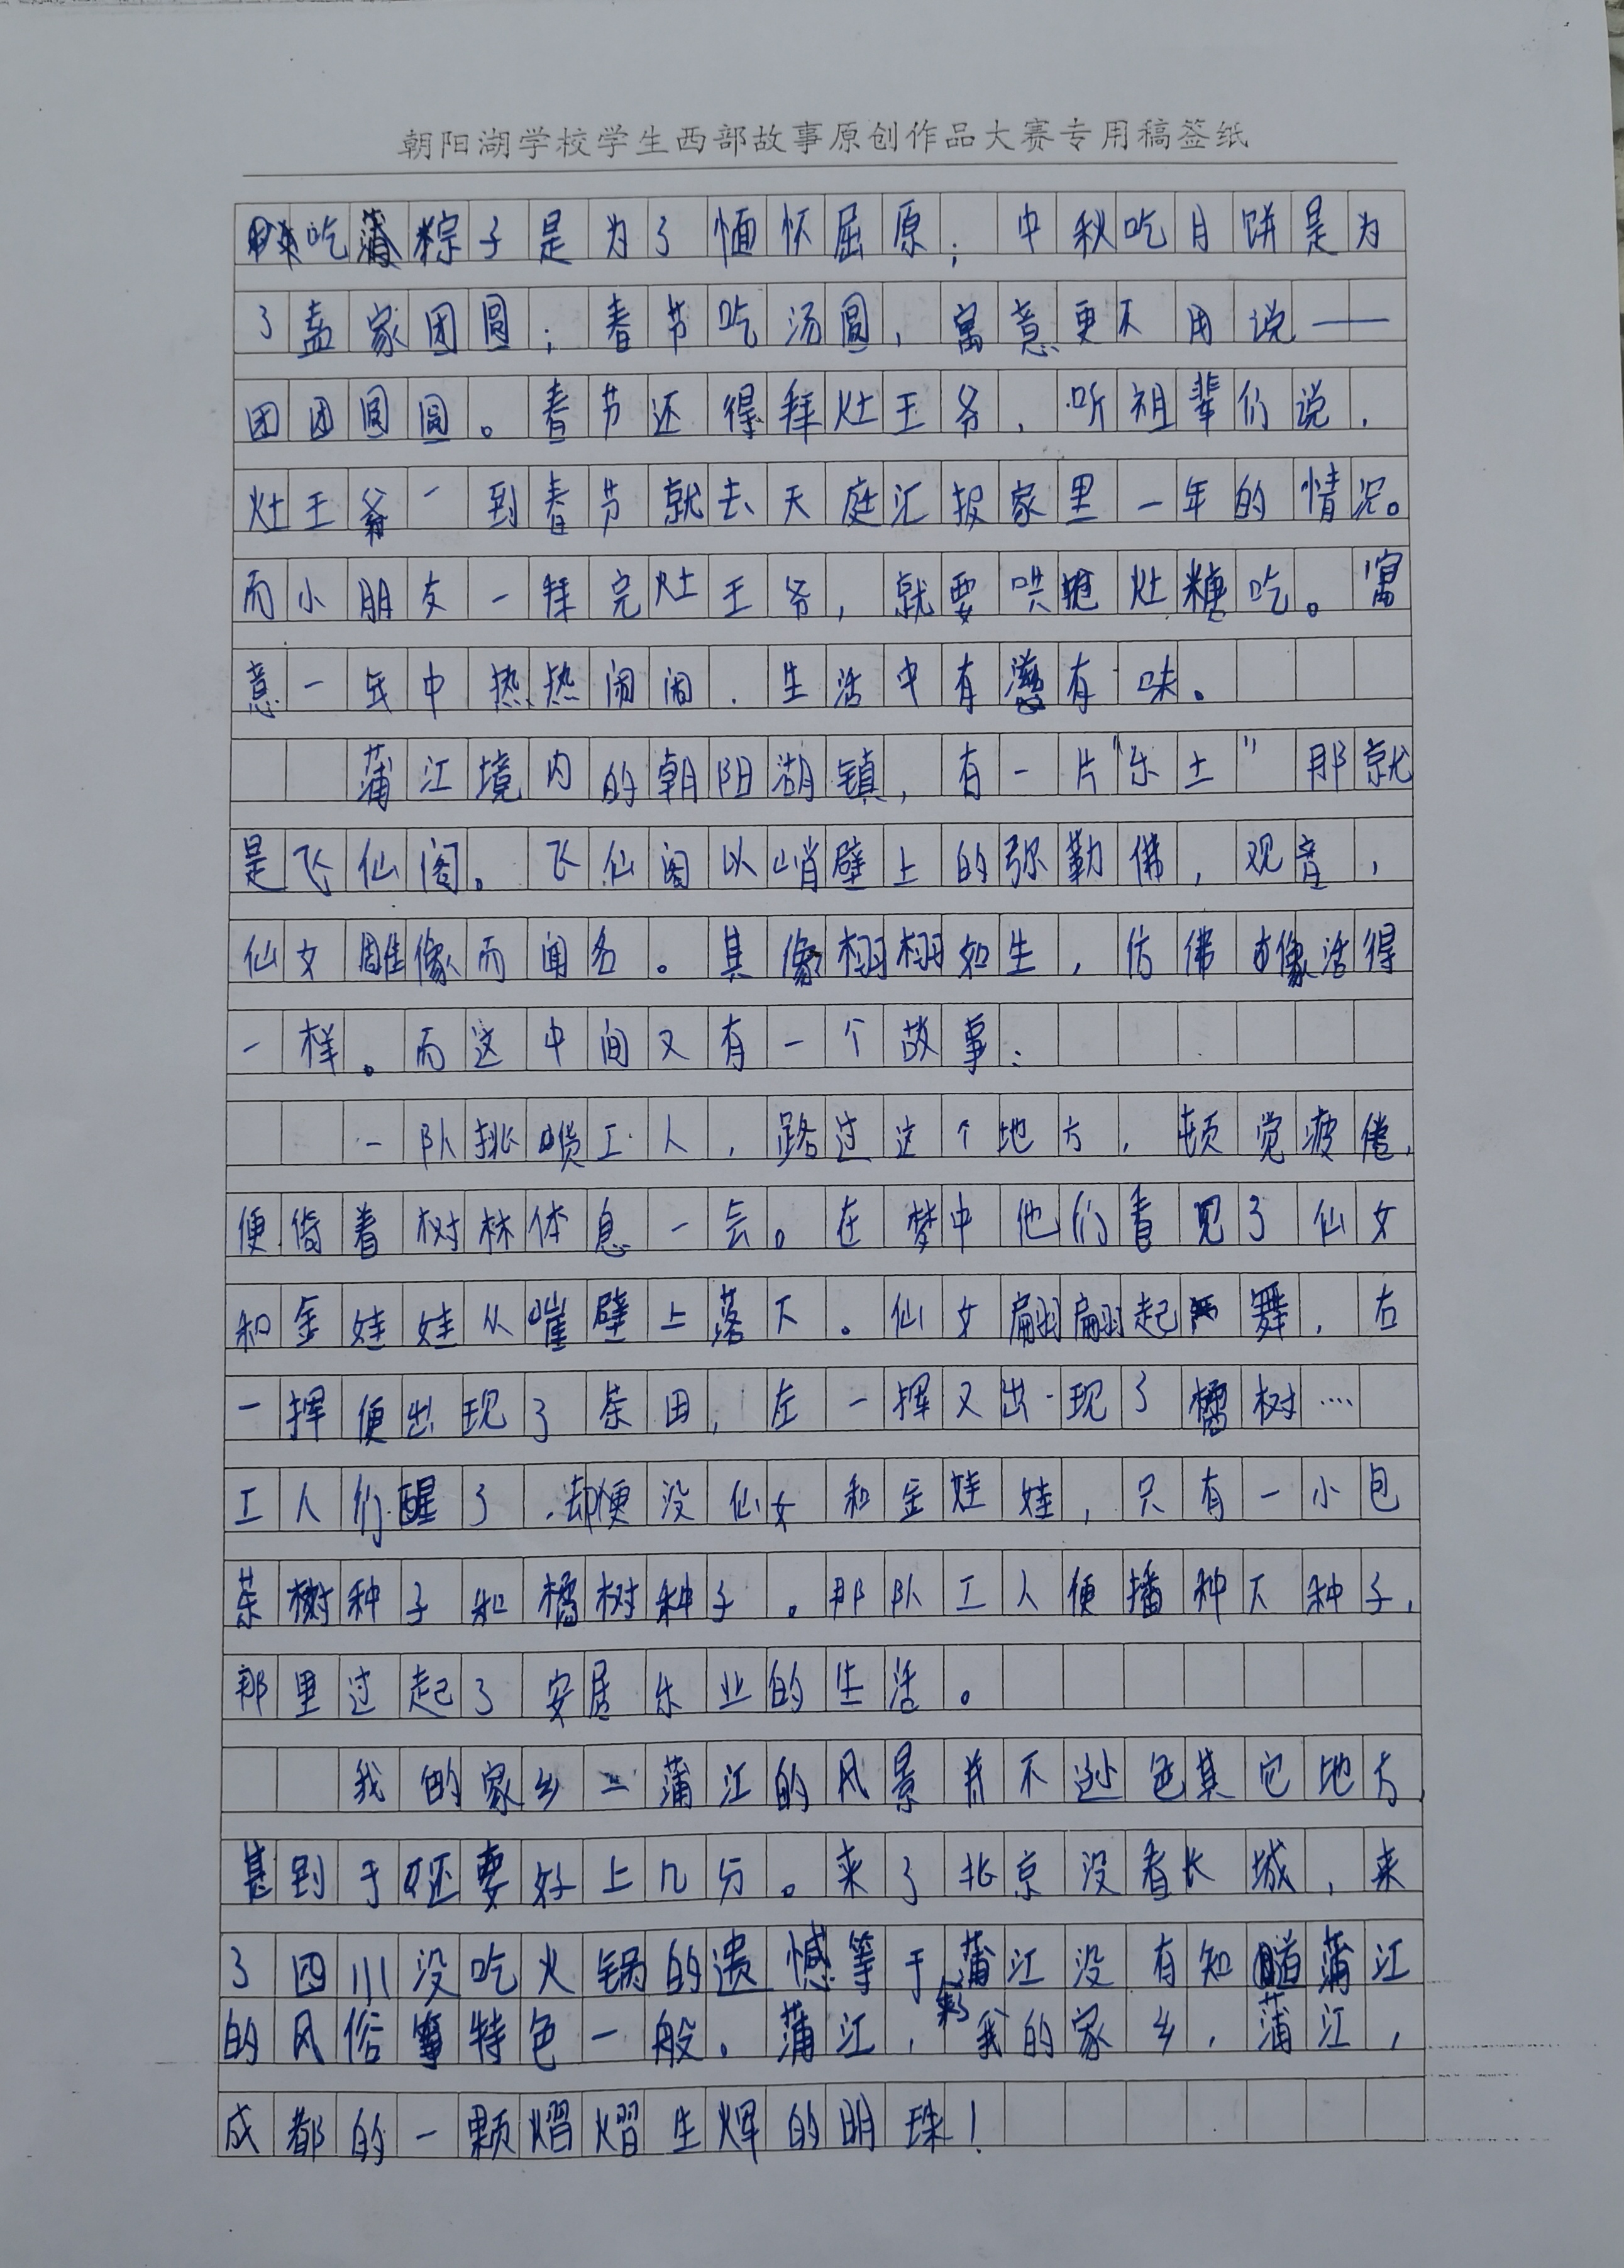 朝阳湖学校学生西部故事原创作品大赛专用稿签纸
吃粽子是为了缅怀屈原；中秋吃月饼是为
了盖家团圆；春节吃汤圆，寓意更不用说——
团团圆圆。春节还得拜灶王爷，听祖辈们说，
灶王爷一到春节就去天庭汇报家里一年的情况。
而小朋友一拜完灶王爷，就要哄抢灶糖吃。寓
意一年中热热闹闹，生活中有滋有味。
蒲江境内的朝阳湖镇，有一片“乐土”那就
是飞仙阁。飞仙阁以峭壁上的弥勒佛，观音，
仙女雕像而闻名。其像栩栩如生，仿佛像活得
一样。而这中间又有一个故事：
一队挑工人，路过这个地方，顿觉疲倦，
便倚着树林休息一会。在梦中他们看见了仙女
和金娃娃从崖壁上落下。仙女翩翩起舞，右
一挥便出现了茶田，左一挥又出现了橘树…
工人们醒了，却便没仙女和金娃娃，只有一小包
茶树种子和橘树种子。那队工人便播种下种子，
那里过起了安居乐业的生活。
我的家乡—蒲江的风景并不逊色其它地方，
甚到于还要好上几分。来了北京没看长城，来
了四川没吃火锅的遗憾等于来了蒲江没有知道蒲江
的风俗事特色一般。蒲江，我的家乡，蒲江，
成都的一颗熠熠生辉的明珠！